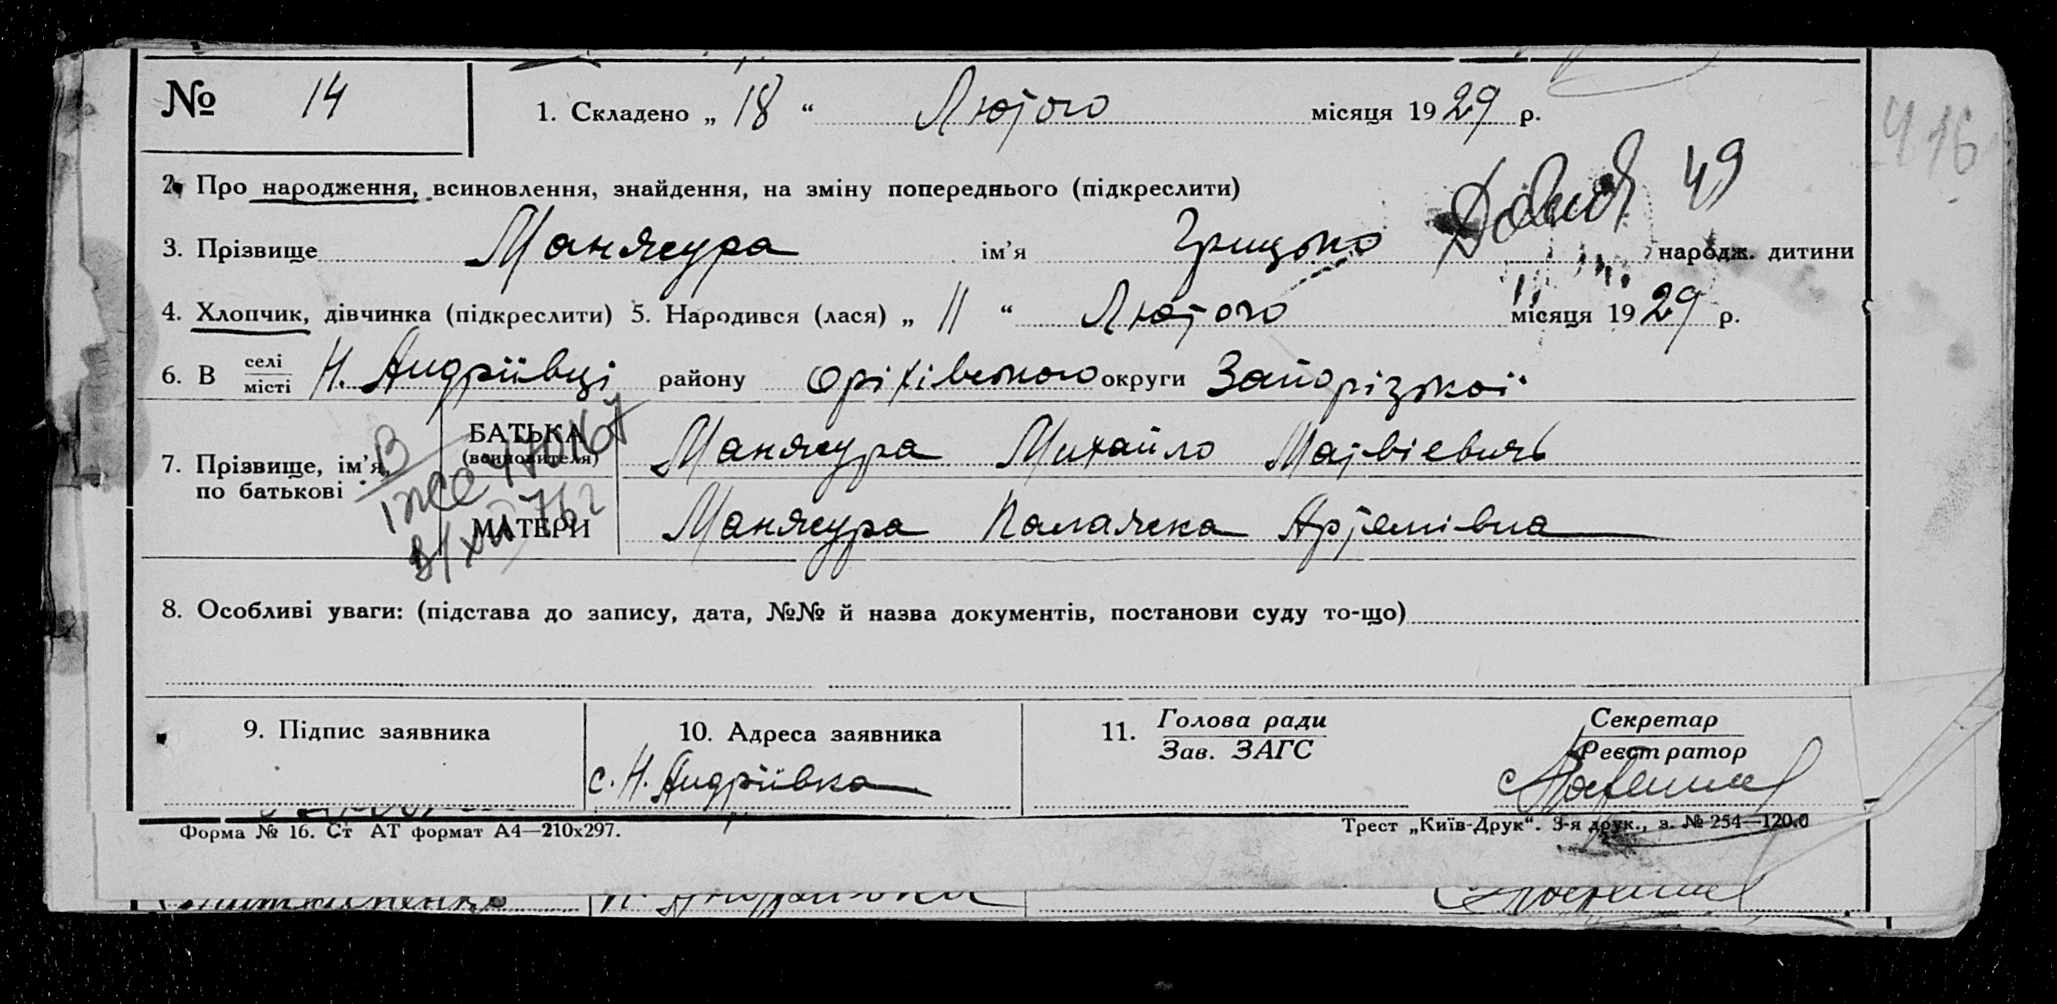 № 14
1. Складено „ 18 “ Лютого місяця 1929 р.
416
49
2. Про народження, всиновлення, знайдення, на зміну попереднього (підкреслити)
3. Прізвище Манжура ім’я Грицько народж. дитини
4. Хлопчик, дівчинка (підкреслити) 5. Народився (лася) „ 11 “ Лютого місяця 1929 р.
6. В селі місті Н. Андріївці району Оріхівського округи Запорізької
7. Прізвище, ім’я, по батькові
БАТЬКА (всиновителя) Манжура Михайло Матвієвичь
МАТЕРИ Манжура Палажка Артемівна
8. Особливі уваги: (підстава до запису, дата, №№ й назва документів, постанови суду то-що)
9. Підпис заявника
10. Адреса заявника
с. Н. Андріївка
11. Голова ради Зав. ЗАГС
Секретар Реєстратор
Форма № 16. Ст АТ формат А4—210х297.
Трест „Київ-Друк“. 3-я друк., з. № 254—120.0